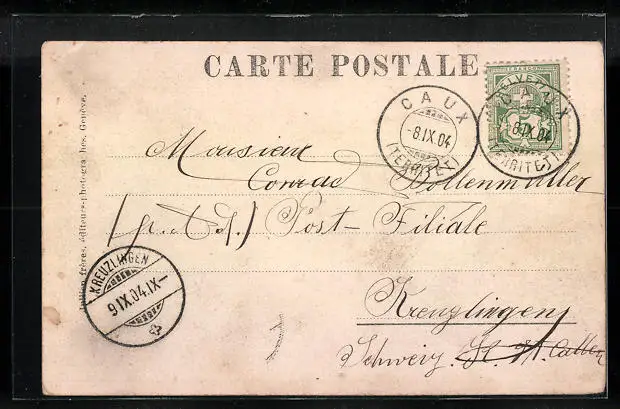 CARTE POSTALE
HELVETIA
FRANCO
CAUX
-8.IX.04
(TERRITET)
CAUX
-8.IX.04
(TERRITET)
Monsieur
Conrad Bollenmüller
Post-Filiale
Kreuzlingen
Schweiz.
KREUZLINGEN
9.IX.04.IX-
Jullien frères, éditeurs-photographes, Genève.